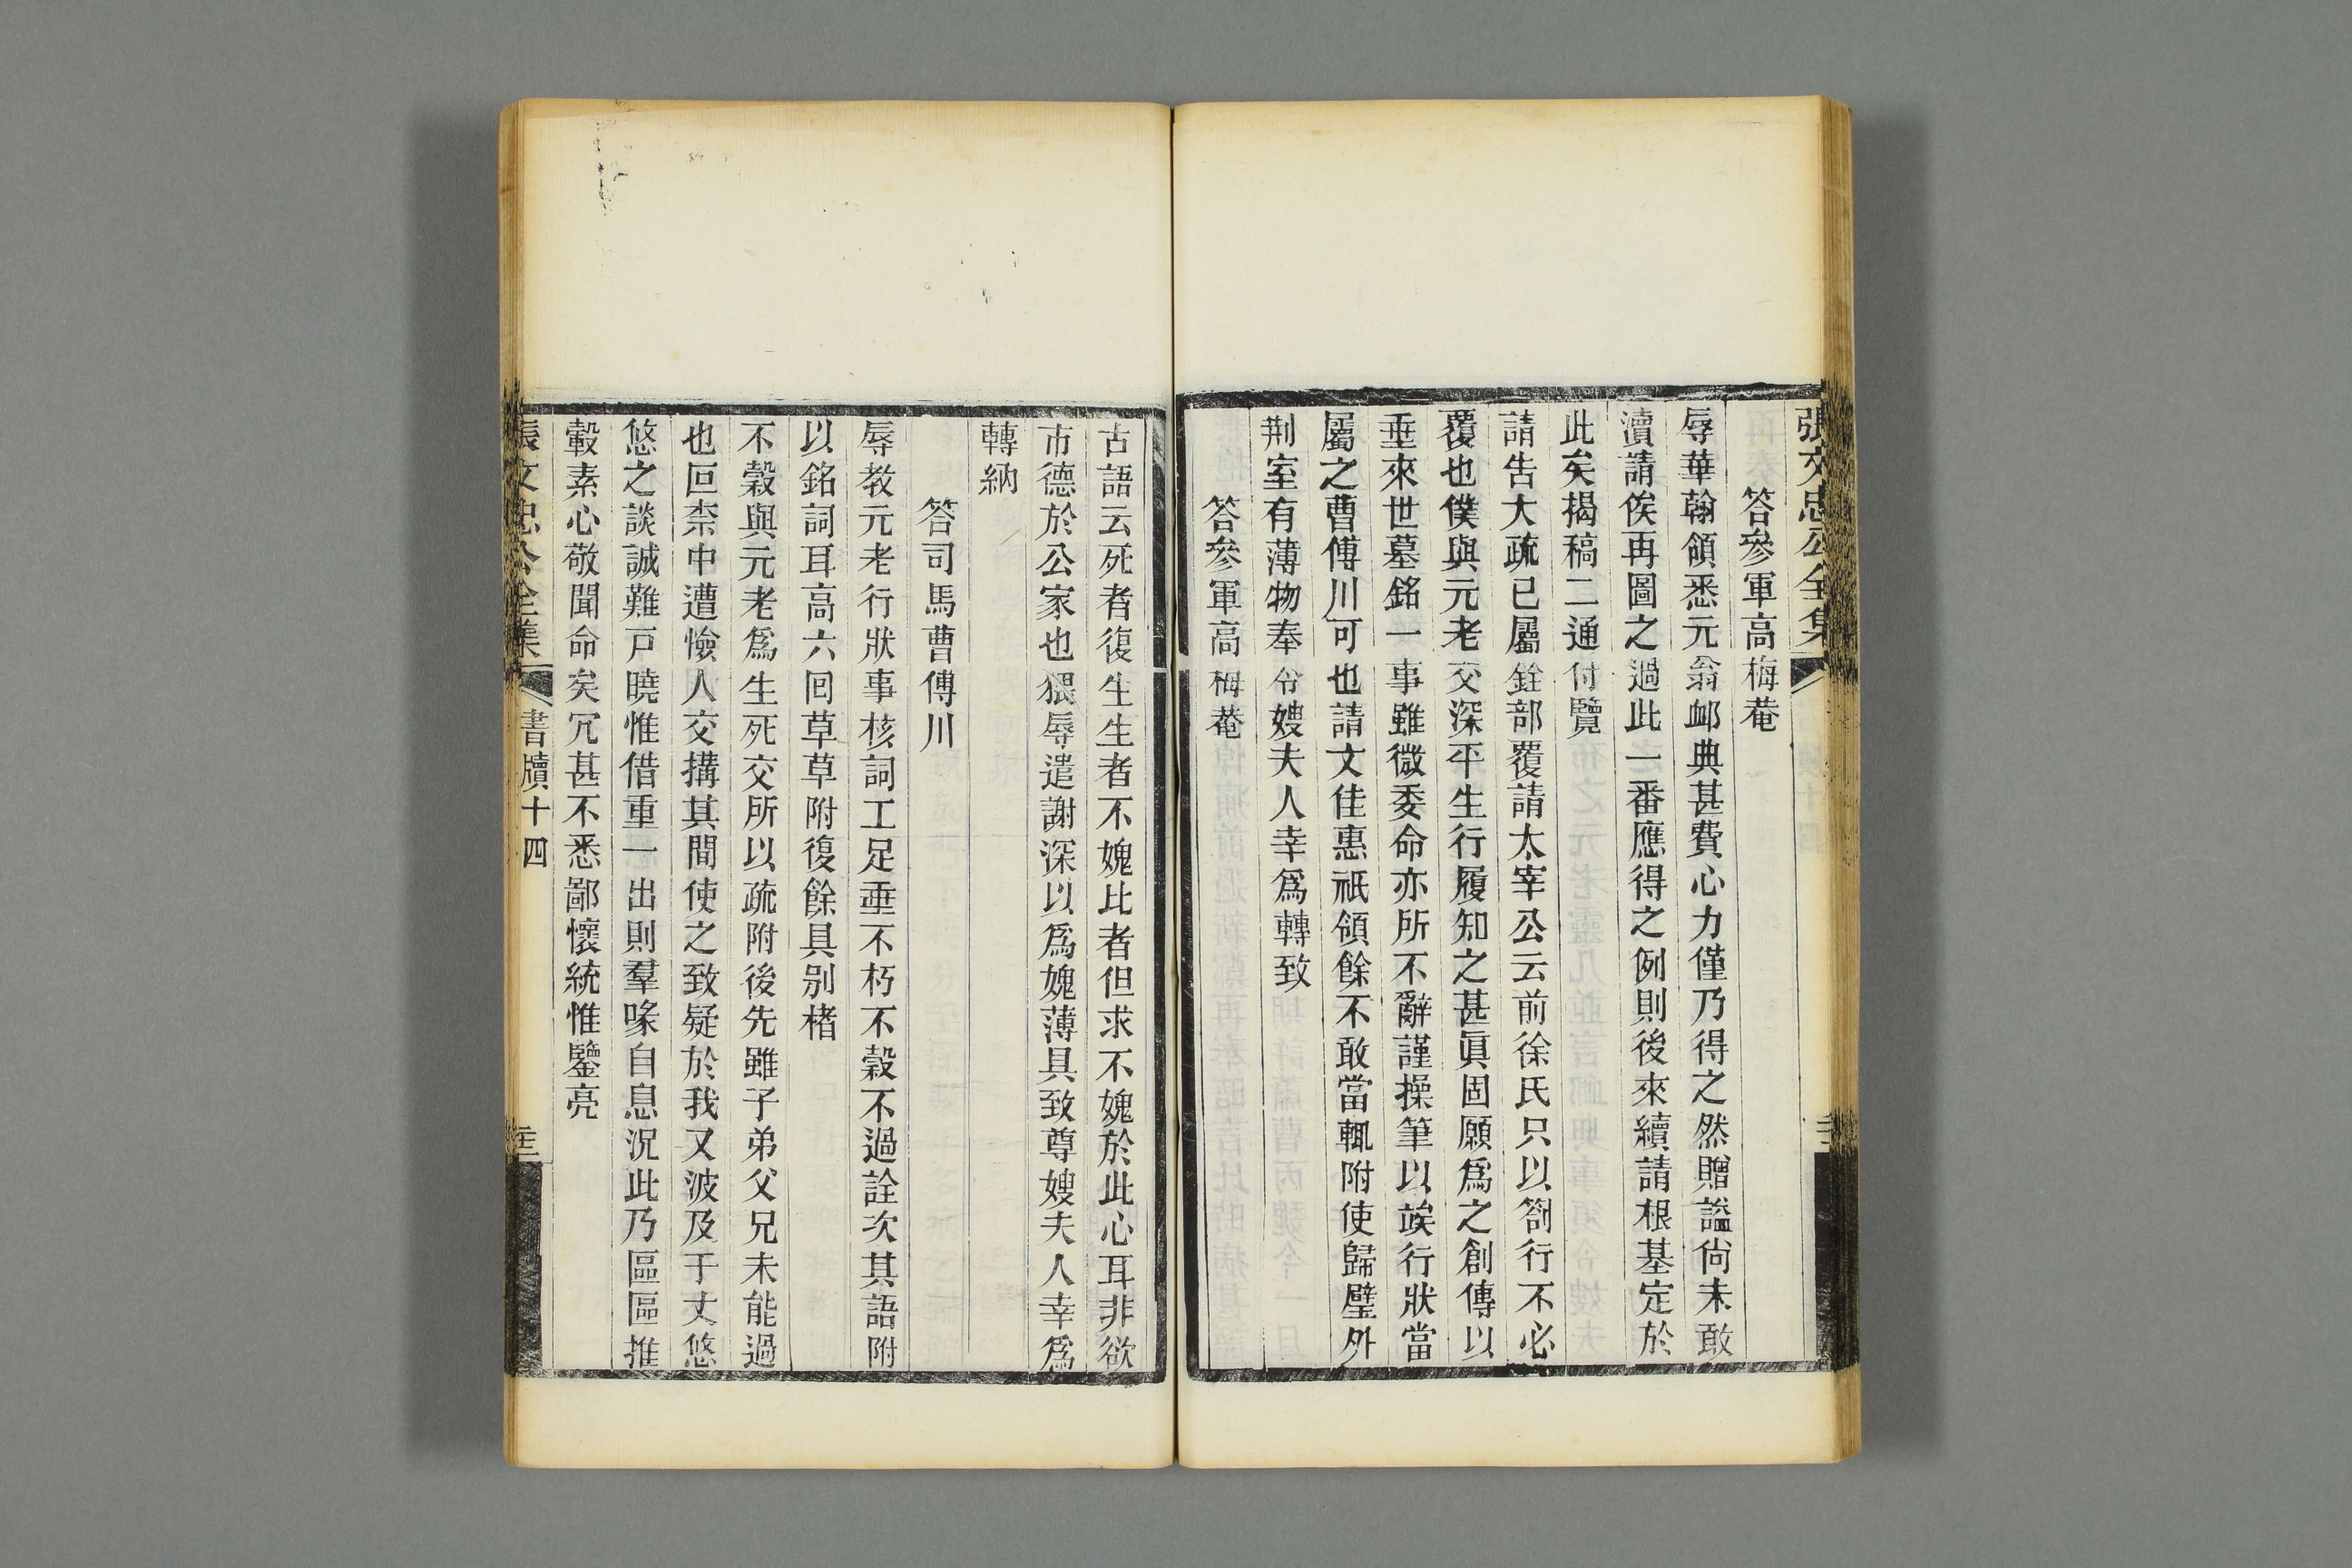 張文忠公全集
答參軍高梅菴
辱華翰領悉元翁邮典甚費心力僅乃得之然贈謚尙未敢
瀆請俟再圖之過此一番應得之例則後來續請根基定於
此矣揭稿二通付覽
請告大疏已屬銓部覆請太宰公云前徐氏只以劄行不必
覆也僕與元老交深平生行履知之甚眞固願爲之創傳以
垂來世墓銘一事雖微委命亦所不辭謹操筆以竢行狀當
屬之曹傅川可也請文佳惠祗領餘不敢當輒附使歸璧外
荆室有薄物奉令嫂夫人幸爲轉致
答參軍高梅菴
古語云死者復生生者不媿比者但求不媿於此心耳非欲
市德於公家也猥辱遣謝深以爲媿薄具致尊嫂夫人幸爲
轉納
答司馬曹傅川
辱教元老行狀事核詞工足垂不朽不穀不過詮次其語附
以銘詞耳高六回草草附復餘具别楮
不穀與元老爲生死交所以疏附後先雖子弟父兄未能過
也叵柰中遭憸人交搆其間使之致疑於我又波及于丈悠
悠之談誠難戸曉惟借重一出則羣喙自息況此乃區區推
轂素心敬聞命矣冗甚不悉鄙懷統惟鑒亮
張文忠公全集
書牘十四